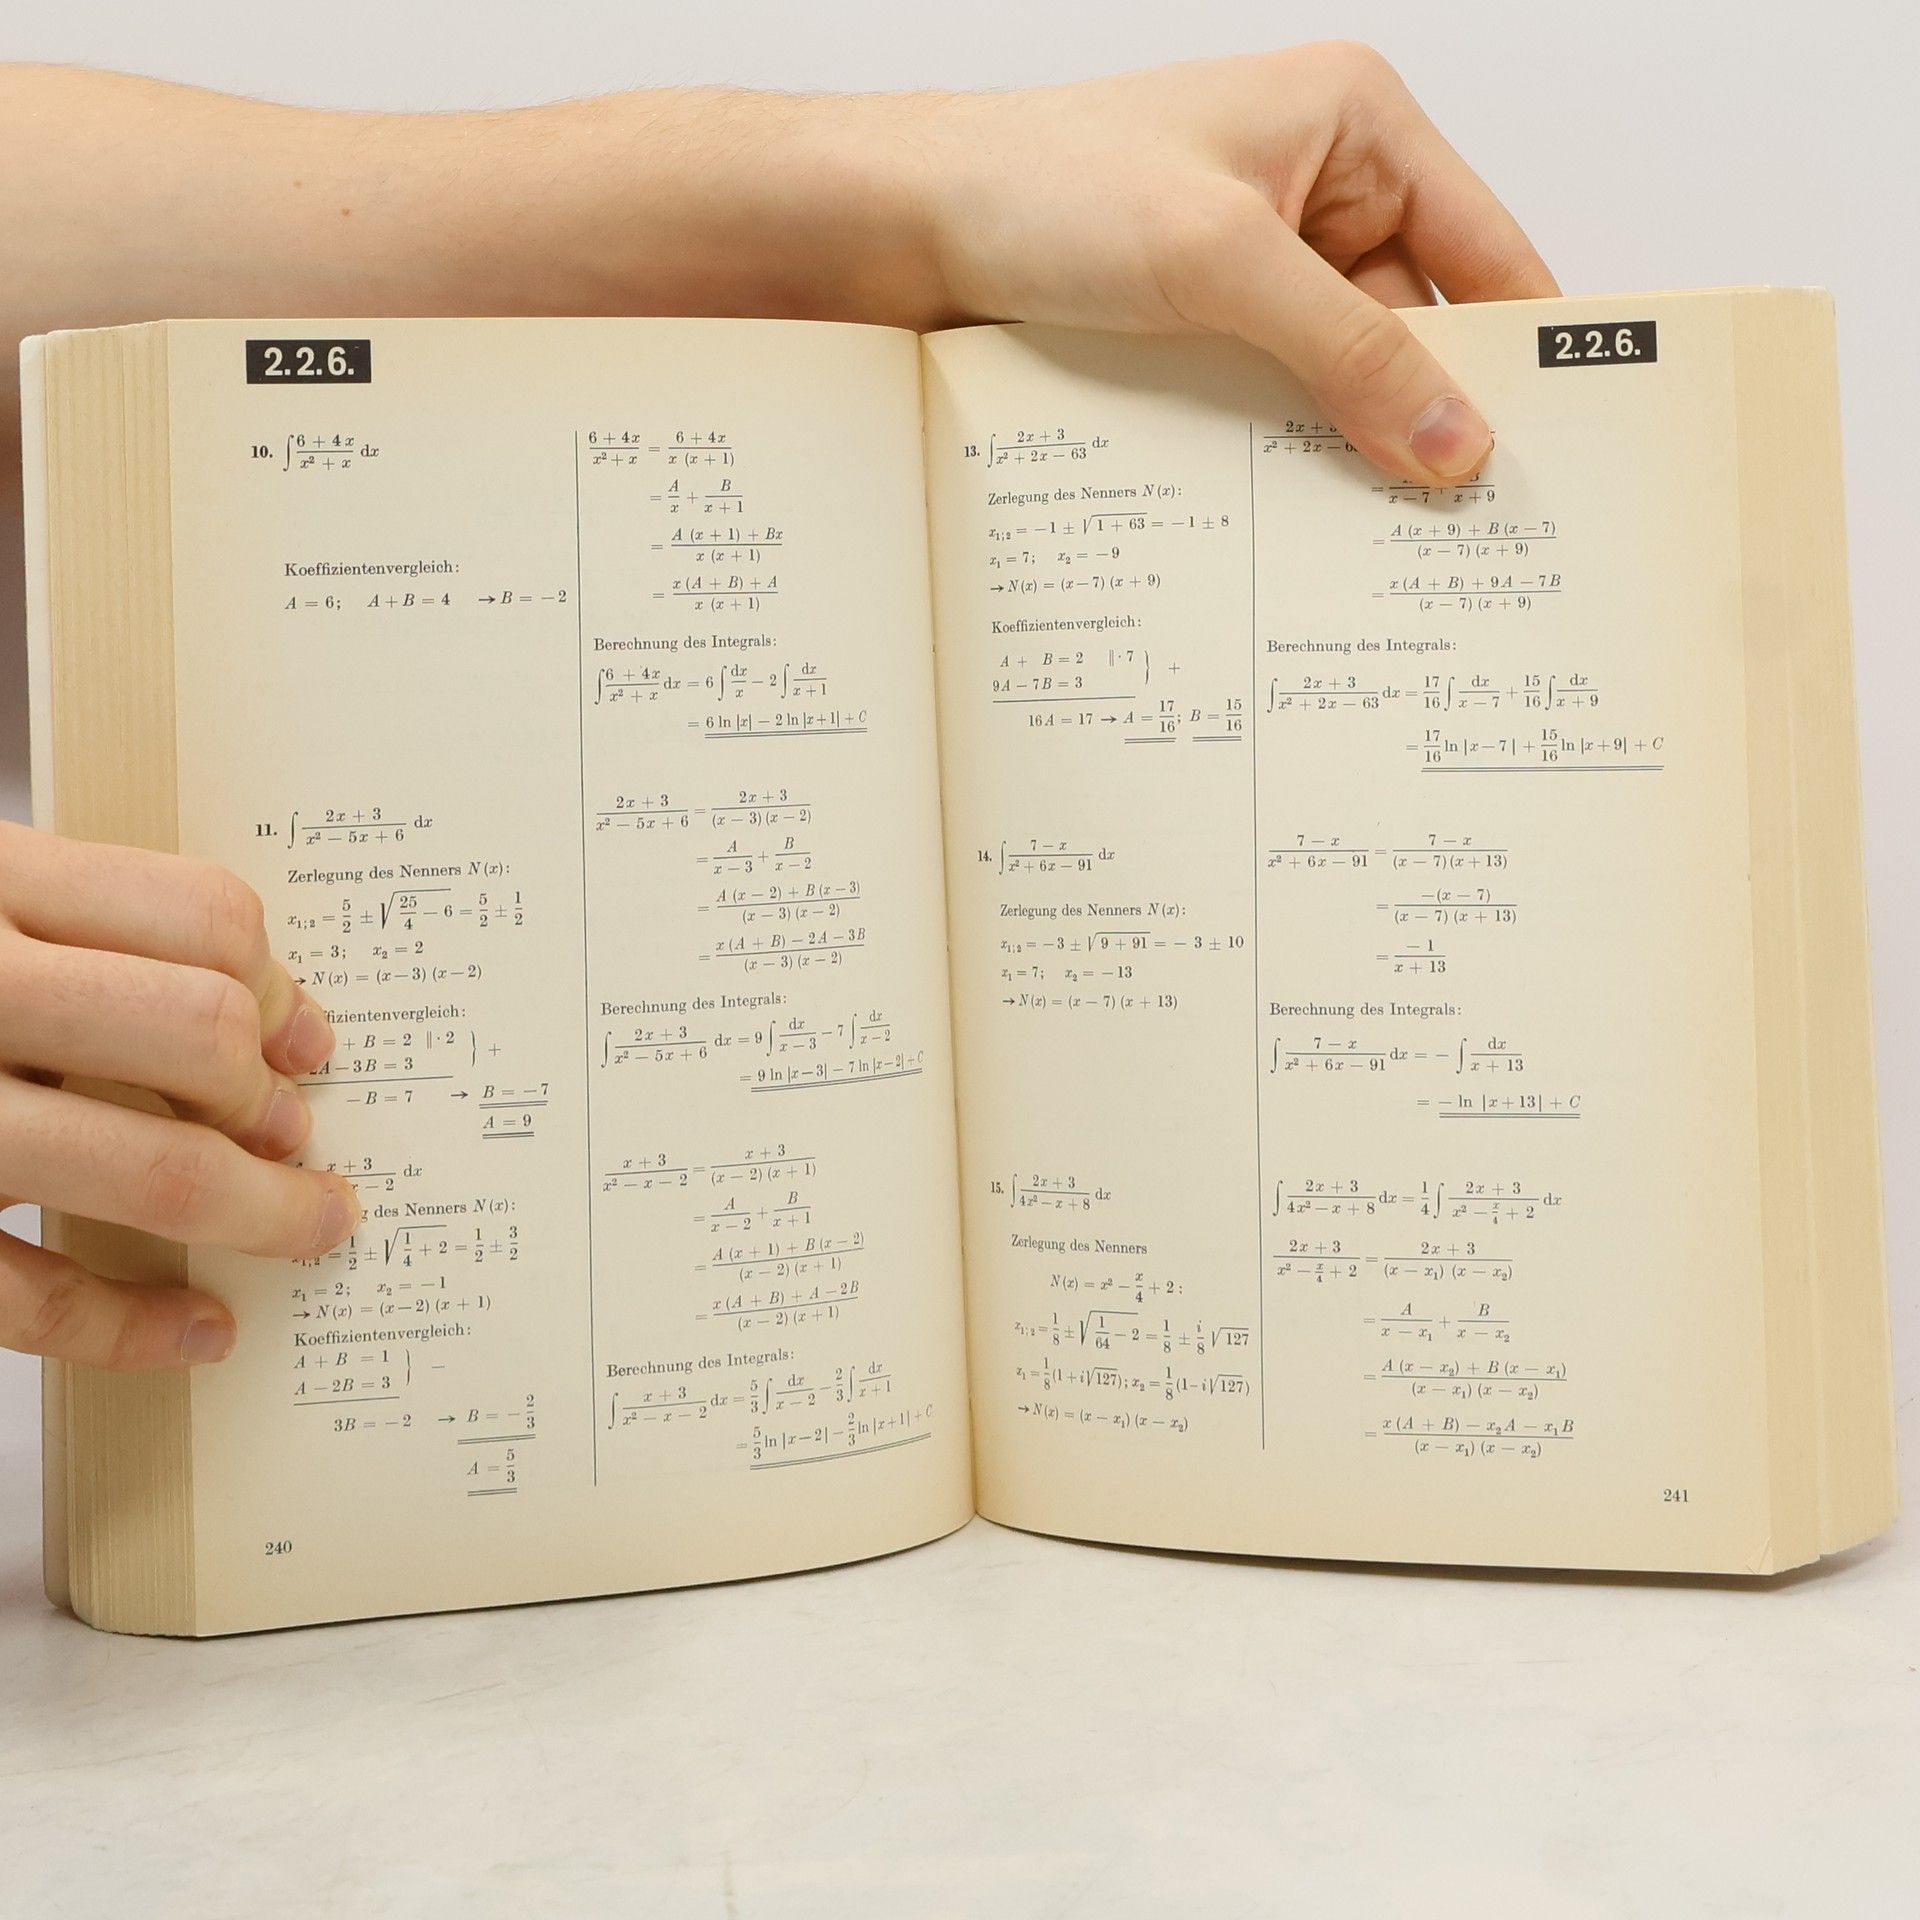 2.2.6.
10. ∫ (6 + 4x)/(x² + x) dx
Koeffizientenvergleich:
A = 6; A + B = 4 → B = −2
(6 + 4x)/(x² + x) = (6 + 4x)/(x (x + 1))
= A/x + B/(x + 1)
= (A (x + 1) + Bx)/(x (x + 1))
= (x (A + B) + A)/(x (x + 1))
Berechnung des Integrals:
∫ (6 + 4x)/(x² + x) dx = 6 ∫ dx/x − 2 ∫ dx/(x + 1)
= 6 ln |x| − 2 ln |x+1| + C
11. ∫ (2x + 3)/(x² − 5x + 6) dx
Zerlegung des Nenners N (x):
x₁;₂ = 5/2 ± √(25/4 − 6) = 5/2 ± 1/2
x₁ = 3; x₂ = 2
→ N (x) = (x−3) (x−2)
+ B = 2 ‖· 2 } +
A − 3B = 3
−B = 7 → B = −7
A = 9
(2x + 3)/(x² − 5x + 6) = (2x + 3)/((x − 3) (x − 2))
= A/(x − 3) + B/(x − 2)
= (A (x − 2) + B (x − 3))/((x − 3) (x − 2))
= (x (A + B) − 2A − 3B)/((x − 3) (x − 2))
Berechnung des Integrals:
∫ (2x + 3)/(x² − 5x + 6) dx = 9 ∫ dx/(x − 3) − 7 ∫ dx/(x − 2)
= 9 ln |x−3| − 7 ln |x−2| + C
x + 3 dx
x − 2
des Nenners N (x):
= 1/2 ± √(1/4 + 2) = 1/2 ± 3/2
x₁ = 2; x₂ = −1
→ N (x) = (x−2) (x + 1)
Koeffizientenvergleich:
A + B = 1 } −
A − 2B = 3
3B = −2 → B = −2/3
A = 5/3
(x + 3)/(x² − x − 2) = (x + 3)/((x − 2) (x + 1))
= A/(x − 2) + B/(x + 1)
= (A (x + 1) + B (x − 2))/((x − 2) (x + 1))
= (x (A + B) + A − 2B)/((x − 2) (x + 1))
Berechnung des Integrals:
∫ (x + 3)/(x² − x − 2) dx = 5/3 ∫ dx/(x − 2) − 2/3 ∫ dx/(x + 1)
= 5/3 ln |x−2| − 2/3 ln |x+1| + C
240
2.2.6.
13. ∫ (2x + 3)/(x² + 2x − 63) dx
Zerlegung des Nenners N (x):
x₁;₂ = −1 ± √(1 + 63) = −1 ± 8
x₁ = 7; x₂ = −9
→ N (x) = (x−7) (x + 9)
Koeffizientenvergleich:
A + B = 2 ‖· 7 } +
9A − 7B = 3
16A = 17 → A = 17/16; B = 15/16
2x +
x² + 2x −
= x − 7 + x + 9
= (A (x + 9) + B (x − 7))/((x − 7) (x + 9))
= (x (A + B) + 9A − 7B)/((x − 7) (x + 9))
Berechnung des Integrals:
∫ (2x + 3)/(x² + 2x − 63) dx = 17/16 ∫ dx/(x − 7) + 15/16 ∫ dx/(x + 9)
= 17/16 ln |x−7| + 15/16 ln |x+9| + C
14. ∫ (7 − x)/(x² + 6x − 91) dx
Zerlegung des Nenners N (x):
x₁;₂ = −3 ± √(9 + 91) = −3 ± 10
x₁ = 7; x₂ = −13
→ N (x) = (x − 7) (x + 13)
(7 − x)/(x² + 6x − 91) = (7 − x)/((x − 7) (x + 13))
= −(x − 7)/((x − 7) (x + 13))
= −1/(x + 13)
Berechnung des Integrals:
∫ (7 − x)/(x² + 6x − 91) dx = − ∫ dx/(x + 13)
= − ln |x+13| + C
15. ∫ (2x + 3)/(4x² − x + 8) dx
Zerlegung des Nenners
N (x) = x² − x/4 + 2 :
x₁;₂ = 1/8 ± √(1/64 − 2) = 1/8 ± i/8 √127
x₁ = 1/8 (1 + i√127); x₂ = 1/8 (1 − i√127)
→ N (x) = (x − x₁) (x − x₂)
∫ (2x + 3)/(4x² − x + 8) dx = 1/4 ∫ (2x + 3)/(x² − x/4 + 2) dx
(2x + 3)/(x² − x/4 + 2) = (2x + 3)/((x − x₁) (x − x₂))
= A/(x − x₁) + B/(x − x₂)
= (A (x − x₂) + B (x − x₁))/((x − x₁) (x − x₂))
= (x (A + B) − x₂A − x₁B)/((x − x₁) (x − x₂))
241